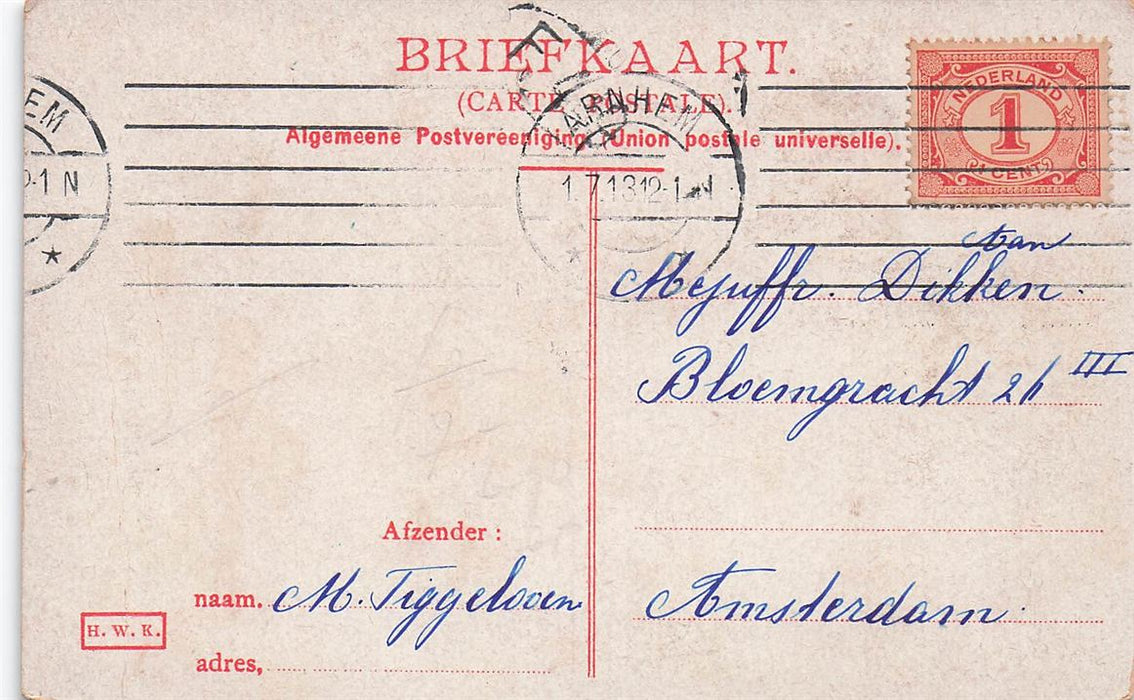 BRIEFKAART.
(CARTE POSTALE).
Algemeene Postvereeniging (Union postale universelle).
NEDERLAND
1
1 CENT
EM
2-1 N
ARNHEM
1.7.1312-1 N
Aan
Mejuffr. Dikken.
Bloemgracht 26 III
Amsterdam.
Afzender:
naam. M. Tiggeloven
adres,
H. W. K.